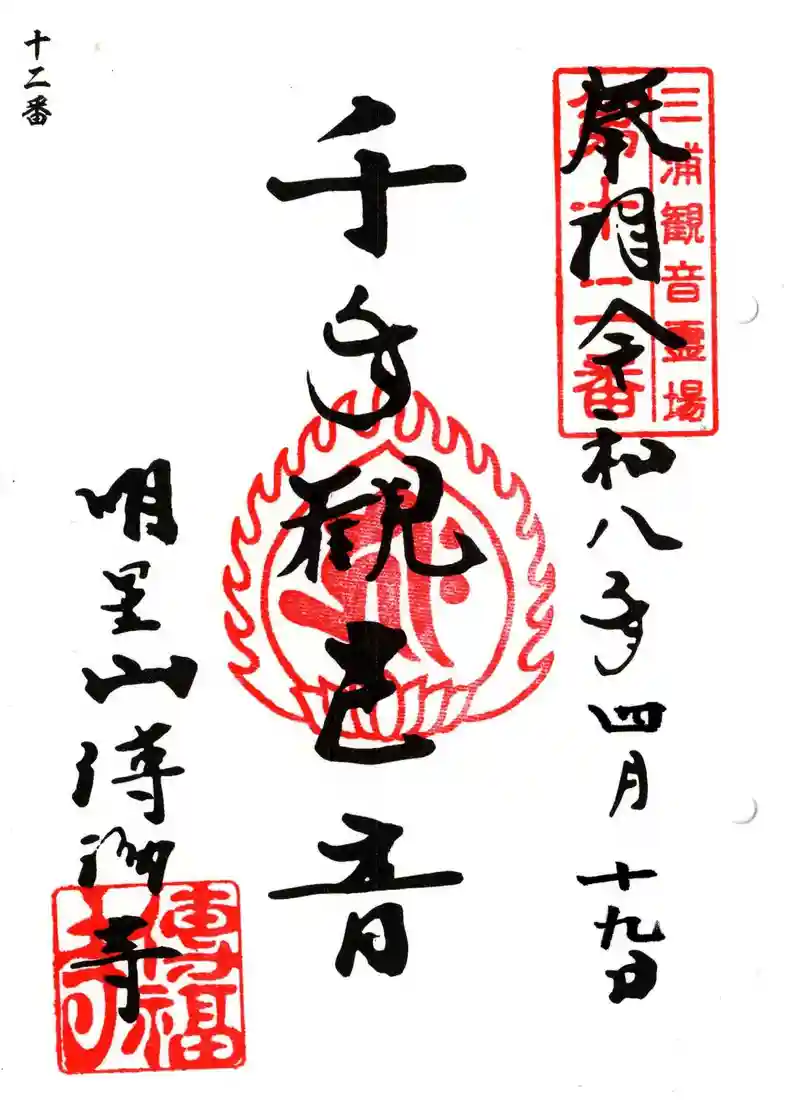 三浦観音霊場
第十二番
奉拝 令和八年四月十九日
千手観世音
明星山傳福寺
傳福寺
十二番